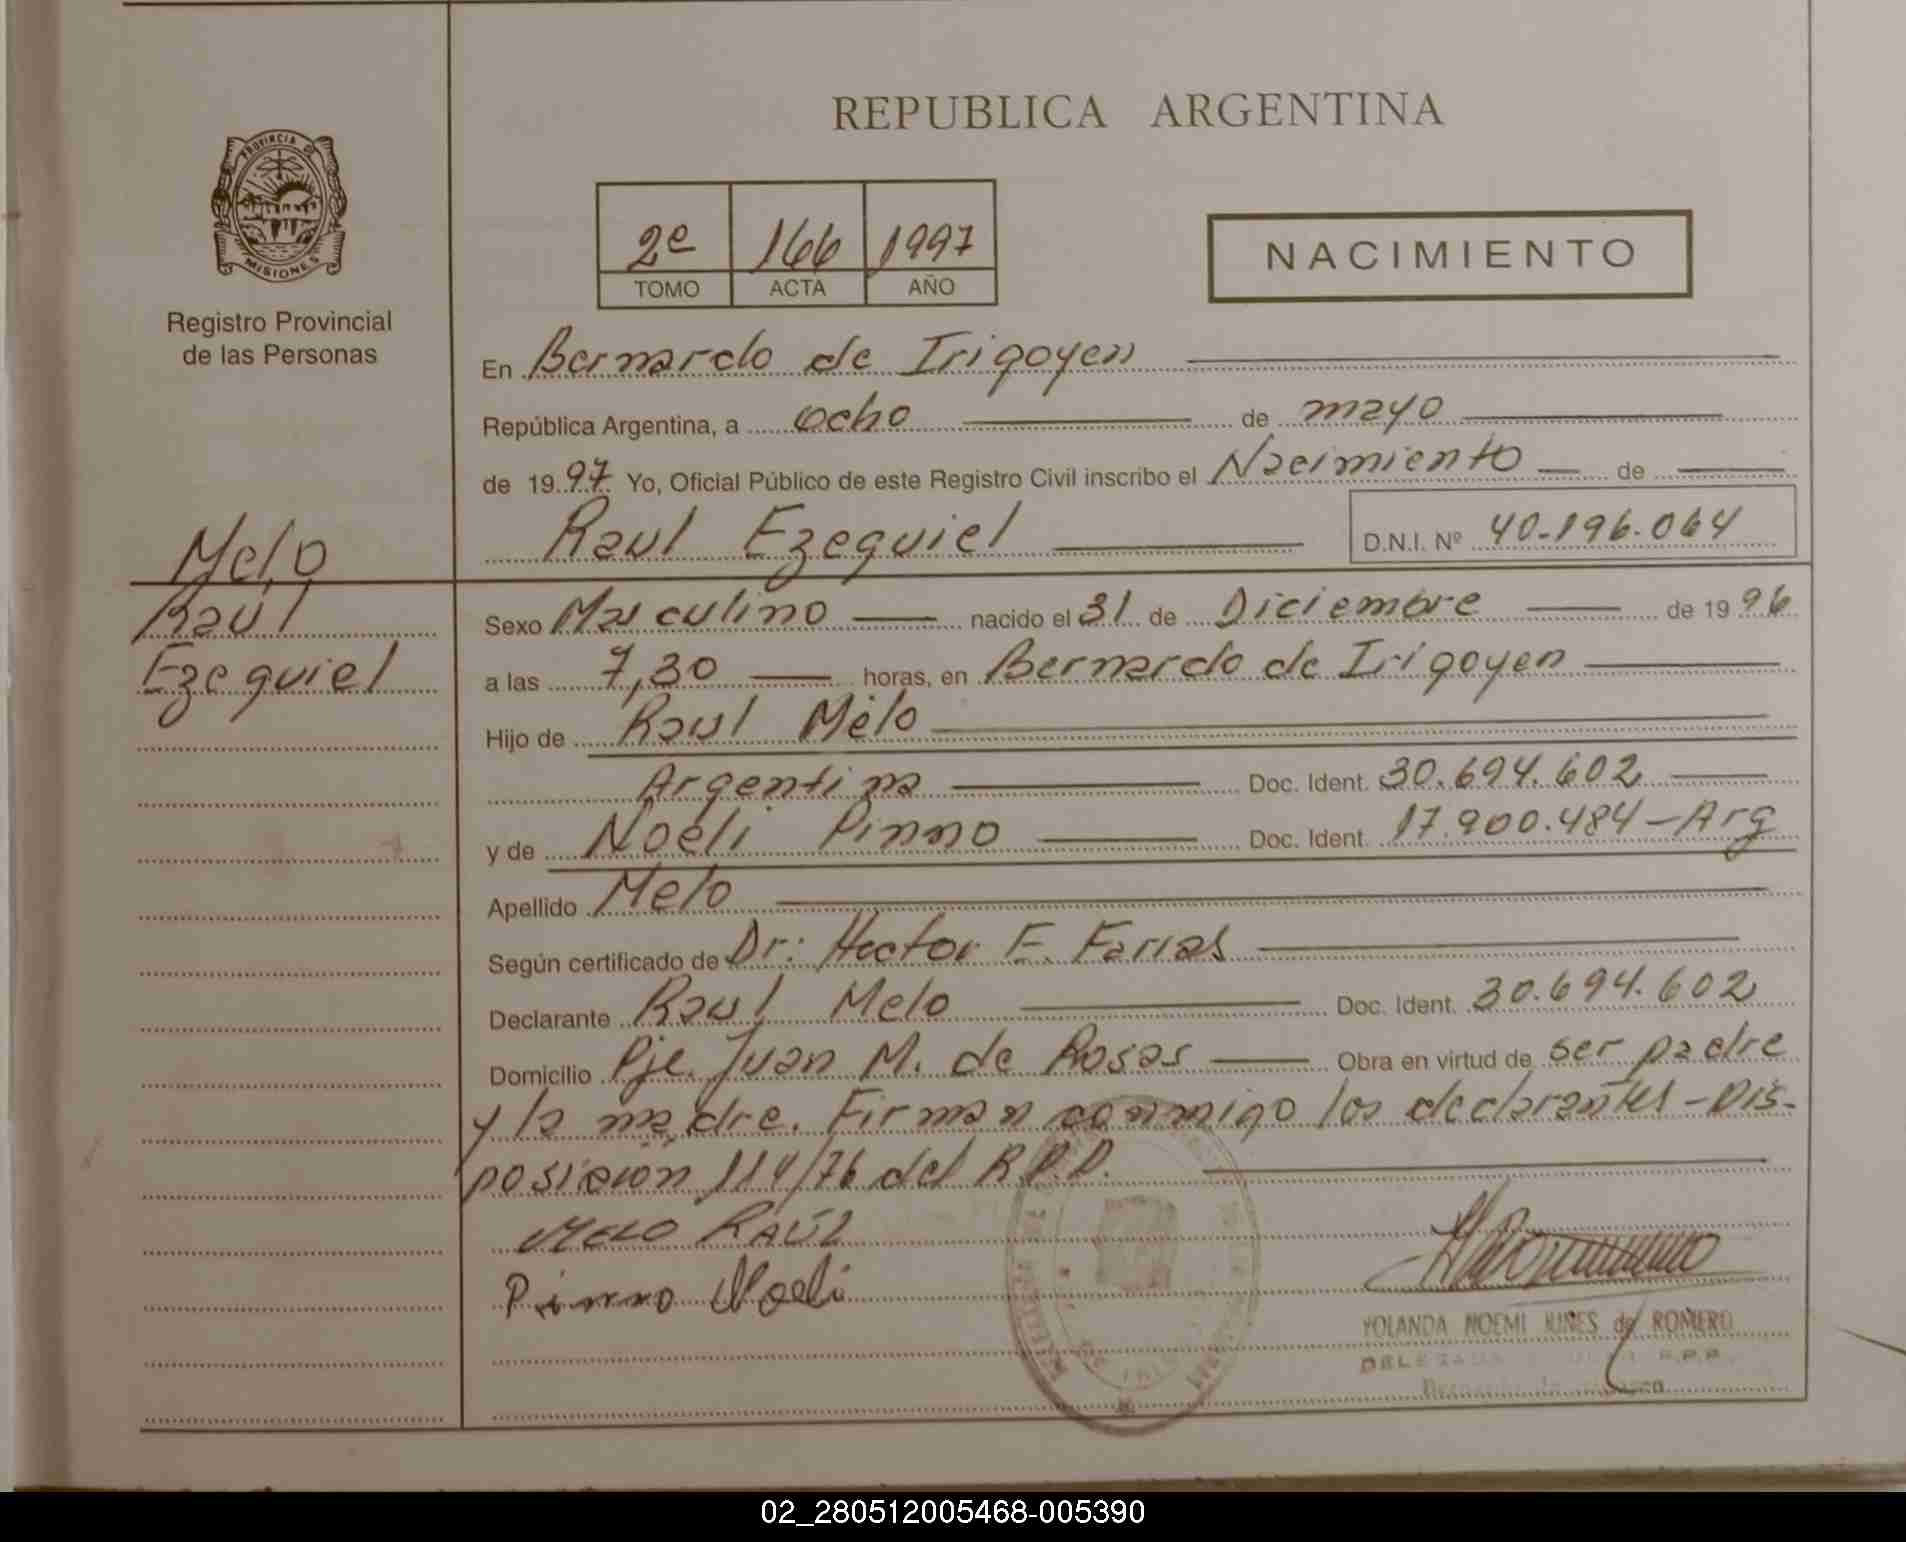 REPUBLICA ARGENTINA
PROVINCIA DE
MISIONES
Registro Provincial
de las Personas
2º 166 1997
TOMO ACTA AÑO
NACIMIENTO
En Bernardo de Irigoyen
República Argentina, a ocho de mayo
de 1997 Yo, Oficial Público de este Registro Civil inscribo el Nacimiento de
Raul Ezequiel D.N.I. Nº 40.196.064
Melo
Raúl
Ezequiel
Sexo Masculino nacido el 31 de Diciembre de 1996
a las 7,30 horas, en Bernardo de Irigoyen
Hijo de Raul Melo
Argentina Doc. Ident. 30.694.602
y de Noeli Pinno Doc. Ident. 17.900.484-Arg
Apellido Melo
Según certificado de Dr: Hector E. Farias
Declarante Raul Melo Doc. Ident. 30.694.602
Domicilio Pje. Juan M. de Rosas Obra en virtud de ser padre
y la madre. Firman conmigo los declarantes - Dis-
posición 114/76 del R.P.P.
MELO RAÚL
Pinno Noeli
YOLANDA NOEMI de ROMERO
R.P.P.
02_280512005468-005390